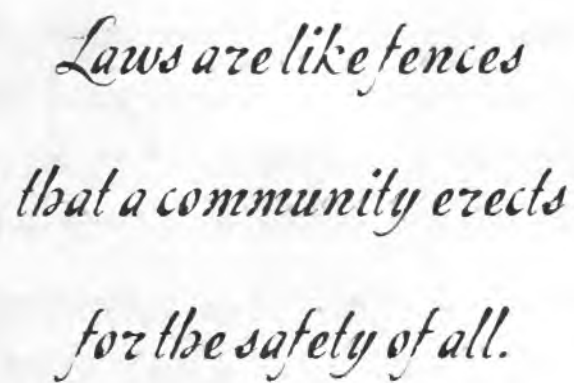 Laws are like fences
that a community erects
for the safety of all.